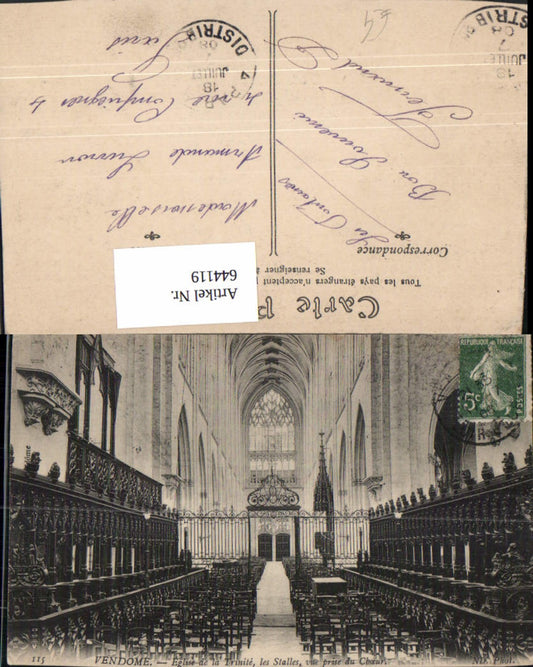 Carte P
Tous les pays étrangers n'acceptent
Se renseigner à
Correspondance
Artikel Nr.
644119
Les Fontaines
Bon Souvenir
Mademoiselle
Armande
rue Compiègne 4
Paris
DISTRIB
18
JUILLET
08
DISTRIB
18
JUILLET
08
RÉPUBLIQUE FRANÇAISE
5c
POSTES
115 VENDOME. — Église de la Trinité, les Stalles, vue prise du Chœur. ND Phot.